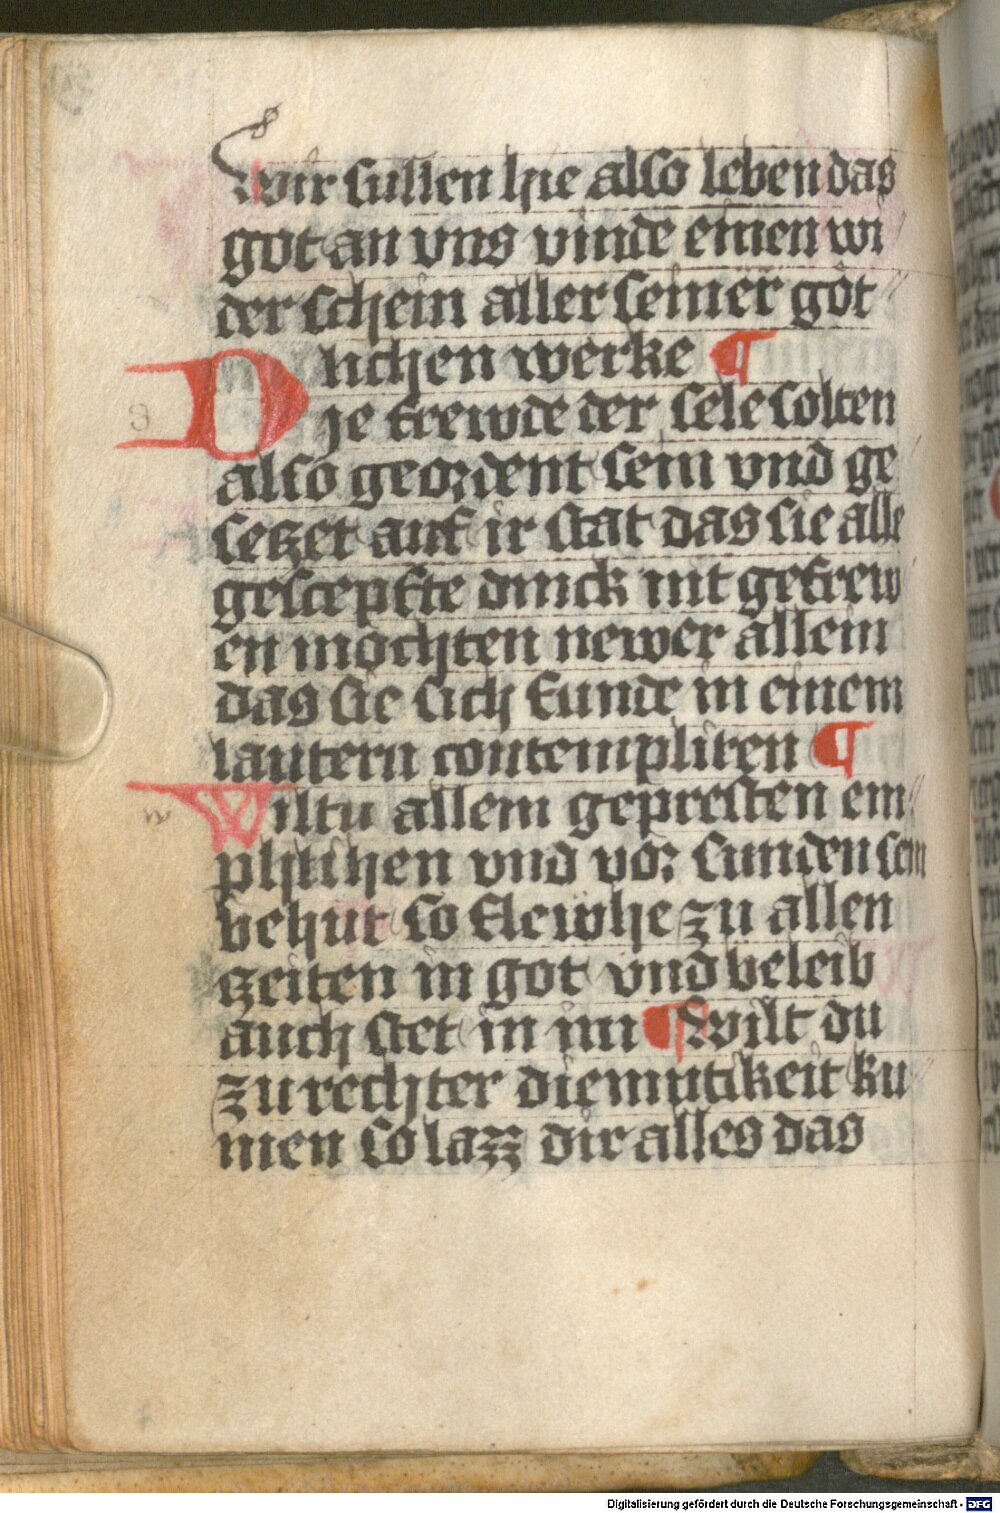 wir sullen hie also leben das
got an vns vinde einen wi
der schein aller seiner got
lichen werke ¶
Die frewde der sele solten
also geordent sein vnd ge
seczet auf ir stat das sie alle
gescepfte dinck nit gefrew
en mochten newer allein
das sie sich funde in einem
lautern contempliren ¶
Wiltu allem gepresten em
pflihen vnd vor sunden sein
behut so flewhe zu allen
czeiten in got vnd beleib
auch stet in im ¶ Wilt du
zu rechter diemutikeit ku
men so lazz dir alles das
w
Digitalisierung gefördert durch die Deutsche Forschungsgemeinschaft - DFG